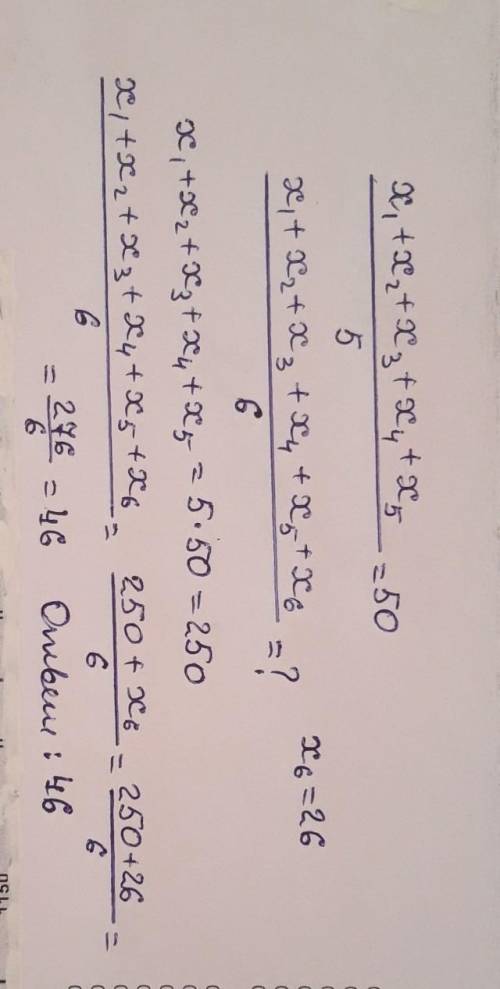 (x₁ + x₂ + x₃ + x₄ + x₅)/5 = 50
(x₁ + x₂ + x₃ + x₄ + x₅ + x₆)/6 = ? x₆ = 26
x₁ + x₂ + x₃ + x₄ + x₅ = 5·50 = 250
(x₁ + x₂ + x₃ + x₄ + x₅ + x₆)/6 = (250 + x₆)/6 = (250 + 26)/6 =
= 276/6 = 46 Ответ: 46